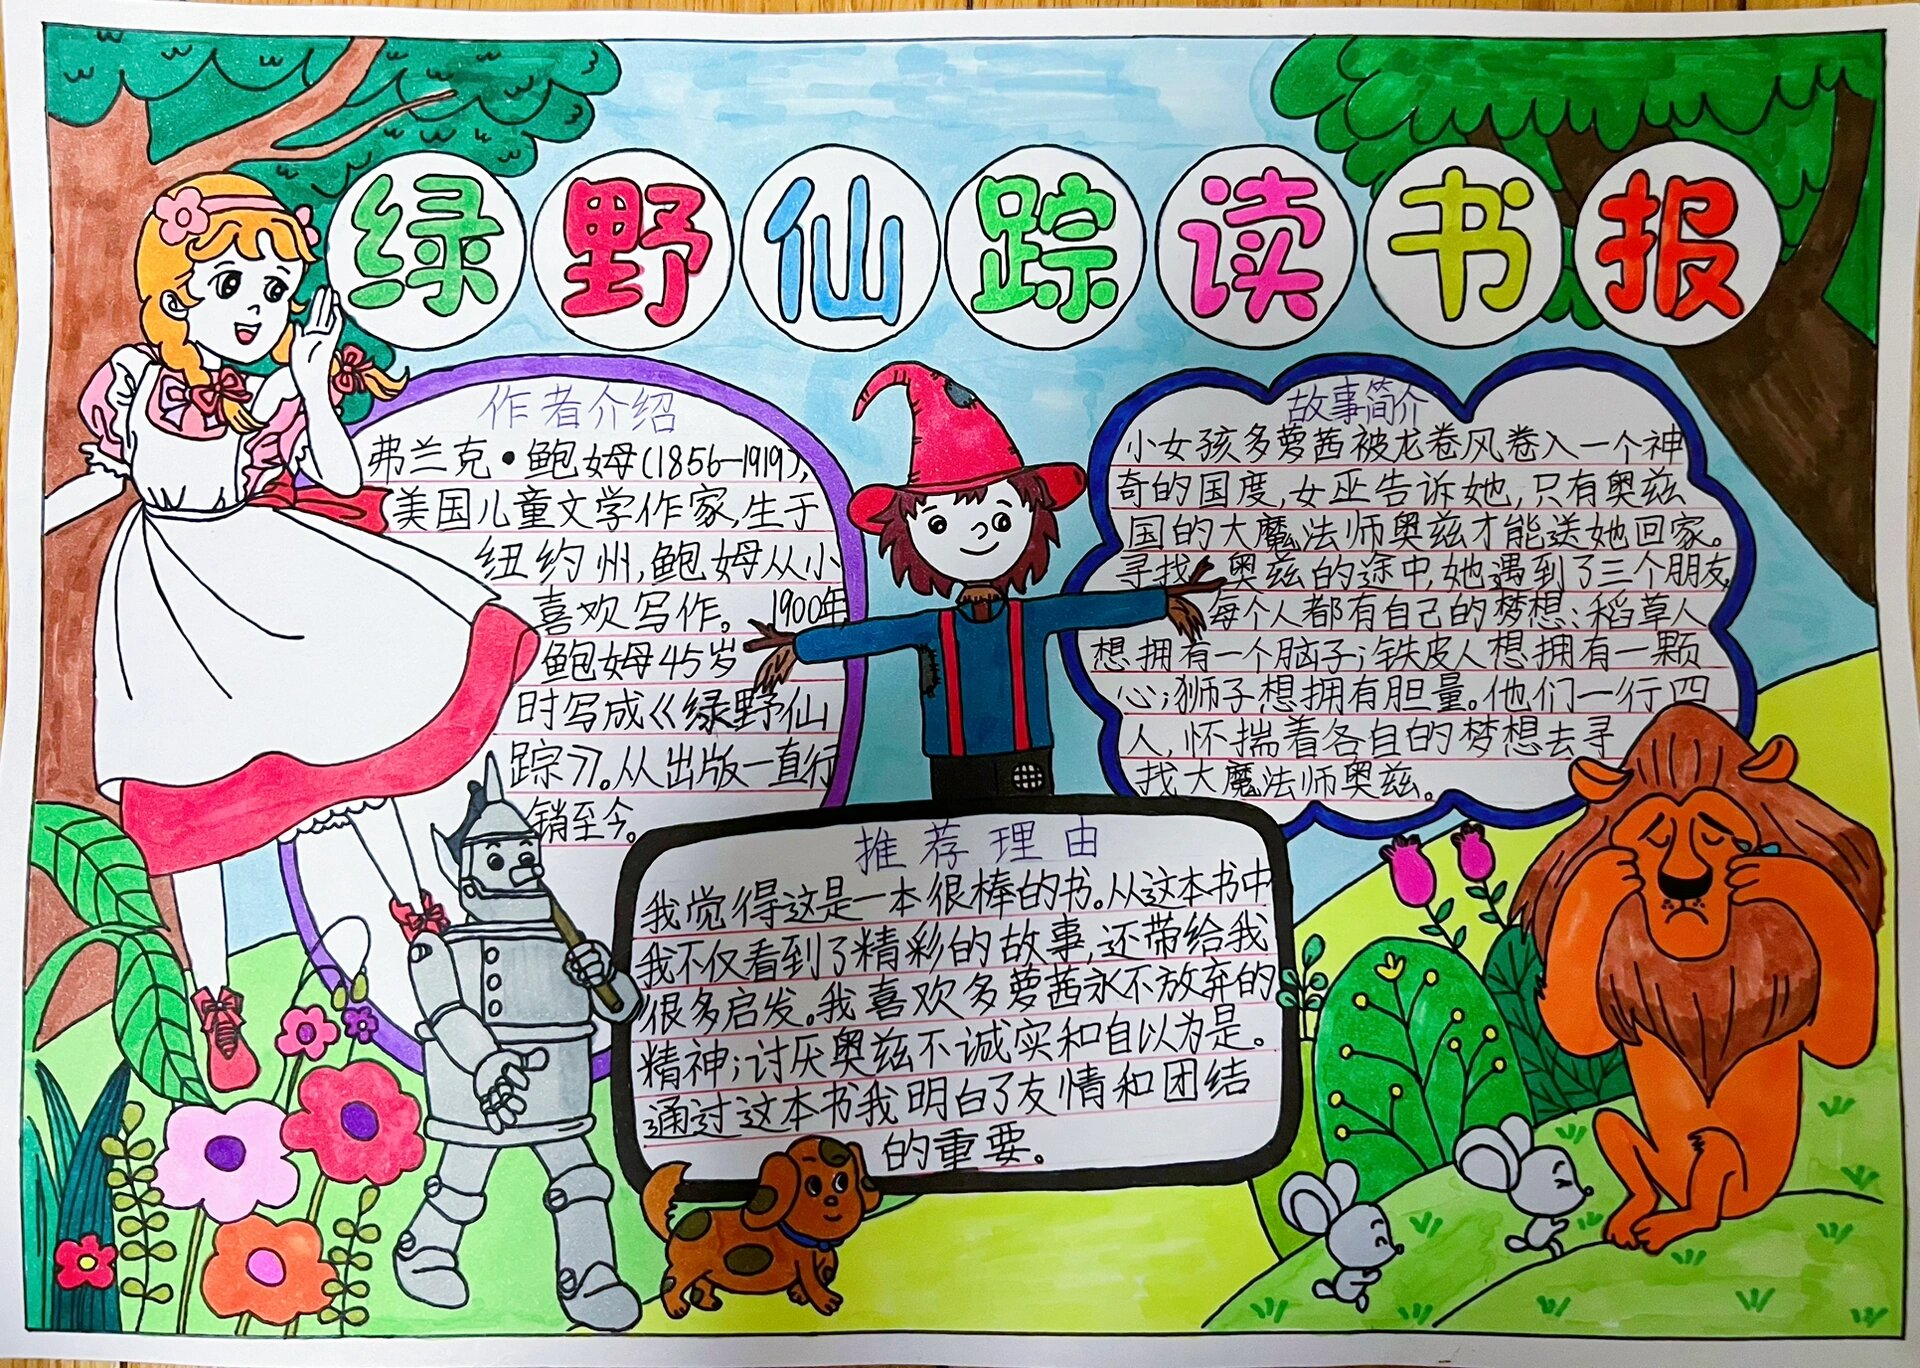 绿野仙踪读书报
作者介绍
弗兰克·鲍姆(1856—1919),
美国儿童文学作家,生于
纽约州,鲍姆从小
喜欢写作。1900年,
鲍姆45岁
时写成《绿野仙
踪》。从出版一直行
销至今。
故事简介
小女孩多萝茜被龙卷风卷入一个神
奇的国度,女巫告诉她,只有奥兹
国的大魔法师奥兹才能送她回家。
寻找奥兹的途中,她遇到了三个朋友,
每个人都有自己的梦想:稻草人
想拥有一个脑子;铁皮人想拥有一颗
心;狮子想拥有胆量。他们一行四
人,怀揣着各自的梦想去寻
找大魔法师奥兹。
推荐理由
我觉得这是一本很棒的书。从这本书中
我不仅看到了精彩的故事,还带给我
很多启发。我喜欢多萝茜永不放弃的
精神;讨厌奥兹不诚实和自以为是。
通过这本书我明白了友情和团结
的重要。